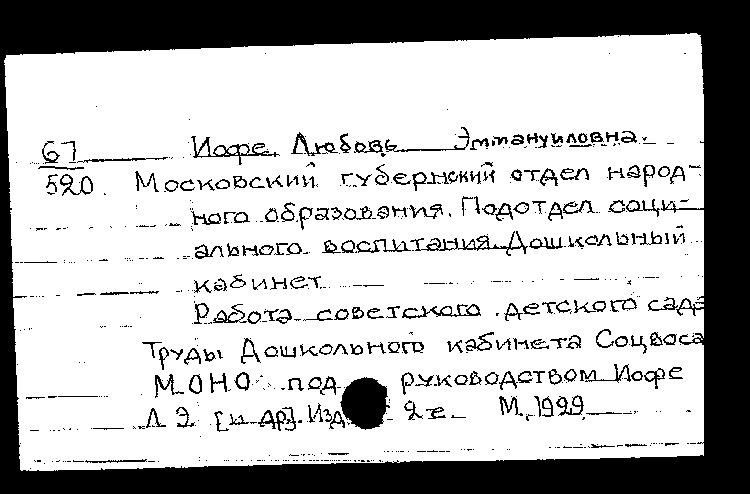 67 Иофе, Любовь Эммануиловна.
520. Московский губернский отдел народ-
ного образования. Подотдел соци-
ального воспитания. Дошкольный
кабинет
Работа советского детского сада
Труды Дошкольного кабинета Соцвоса
МОНО под руководством Иофе
Л. Э. [и др]. Изд. 2-е. М., 1929